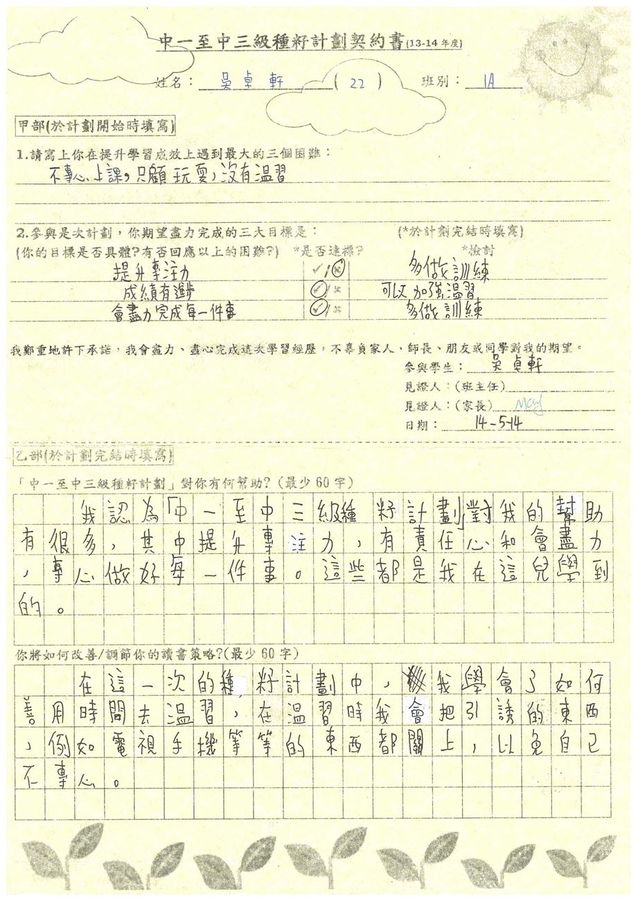 中一至中三級種籽計劃契約書(13-14年度)
姓名： 吳卓軒 (22) 班別： 1A
甲部(於計劃開始時填寫)
1.請寫上你在提升學習成效上遇到最大的三個困難：
不專心上課，只顧玩耍，沒有温習
2.參與是次計劃，你期望盡力完成的三大目標是： (*於計劃完結時填寫)
(你的目標是否具體?有否回應以上的困難?) *是否達標? *檢討
提升專注力 ✓/✕ 多做訓練
成績有進步 ✓/✕ 可以加強温習
會盡力完成每一件事 ✓/✕ 多做訓練
我鄭重地許下承諾，我會盡力、盡心完成這次學習經歷，不辜負家人、師長、朋友或同學對我的期望。
參與學生： 吳卓軒
見證人：(班主任)
見證人：(家長)
日期： 14-5-14
乙部(於計劃完結時填寫)
「中一至中三級種籽計劃」對你有何幫助？(最少60字)
我認為「中一至中三級種籽計劃」對我的幫助
有很多，其中提升專注力，有責任心和會盡力
，專心做好每一件事。這些都是我在這兒學到
的。
你將如何改善/調節你的讀書策略?(最少60字)
在這一次的種籽計劃中，我學會了如何
善用時間去温習，在温習時我會把引誘的東西
，例如電視手機等等的東西都關上，以免自己
不專心。